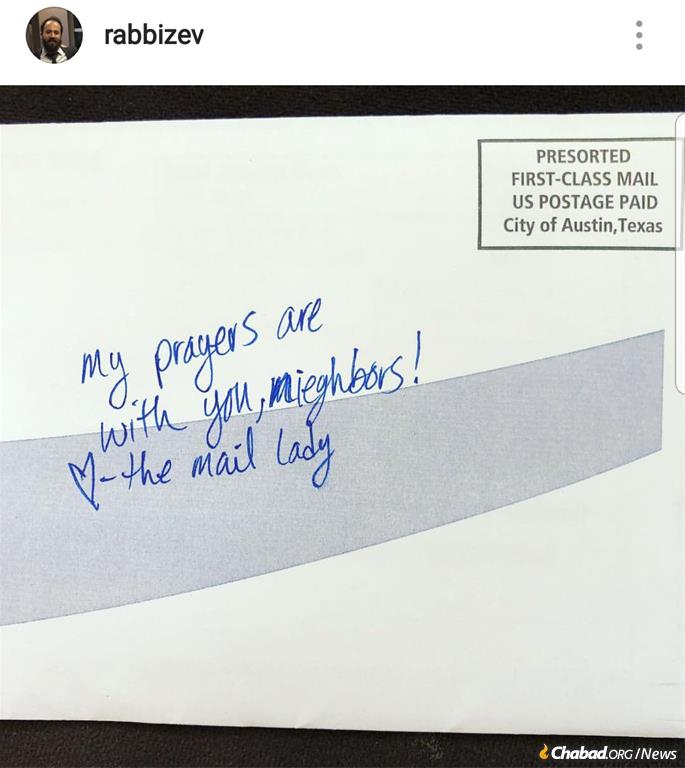 rabbizev
PRESORTED
FIRST-CLASS MAIL
US POSTAGE PAID
City of Austin,Texas
my prayers are
with you, nieghbors!
♡-the mail lady
Chabad.ORG/News